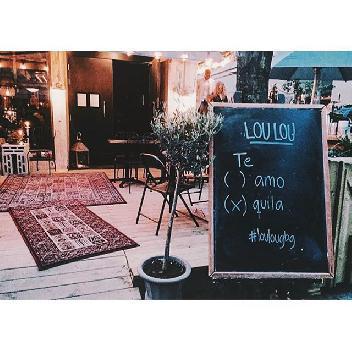 LOULOU
Te
( ) amo
(x) quila
#loulougbg